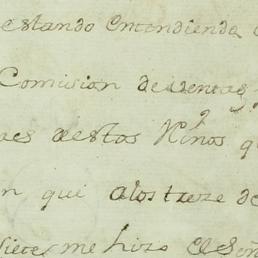 estando entendiendo
Comision de ventas
des destos Rinos q
n que alos treze de
siete, me hizo el Señ